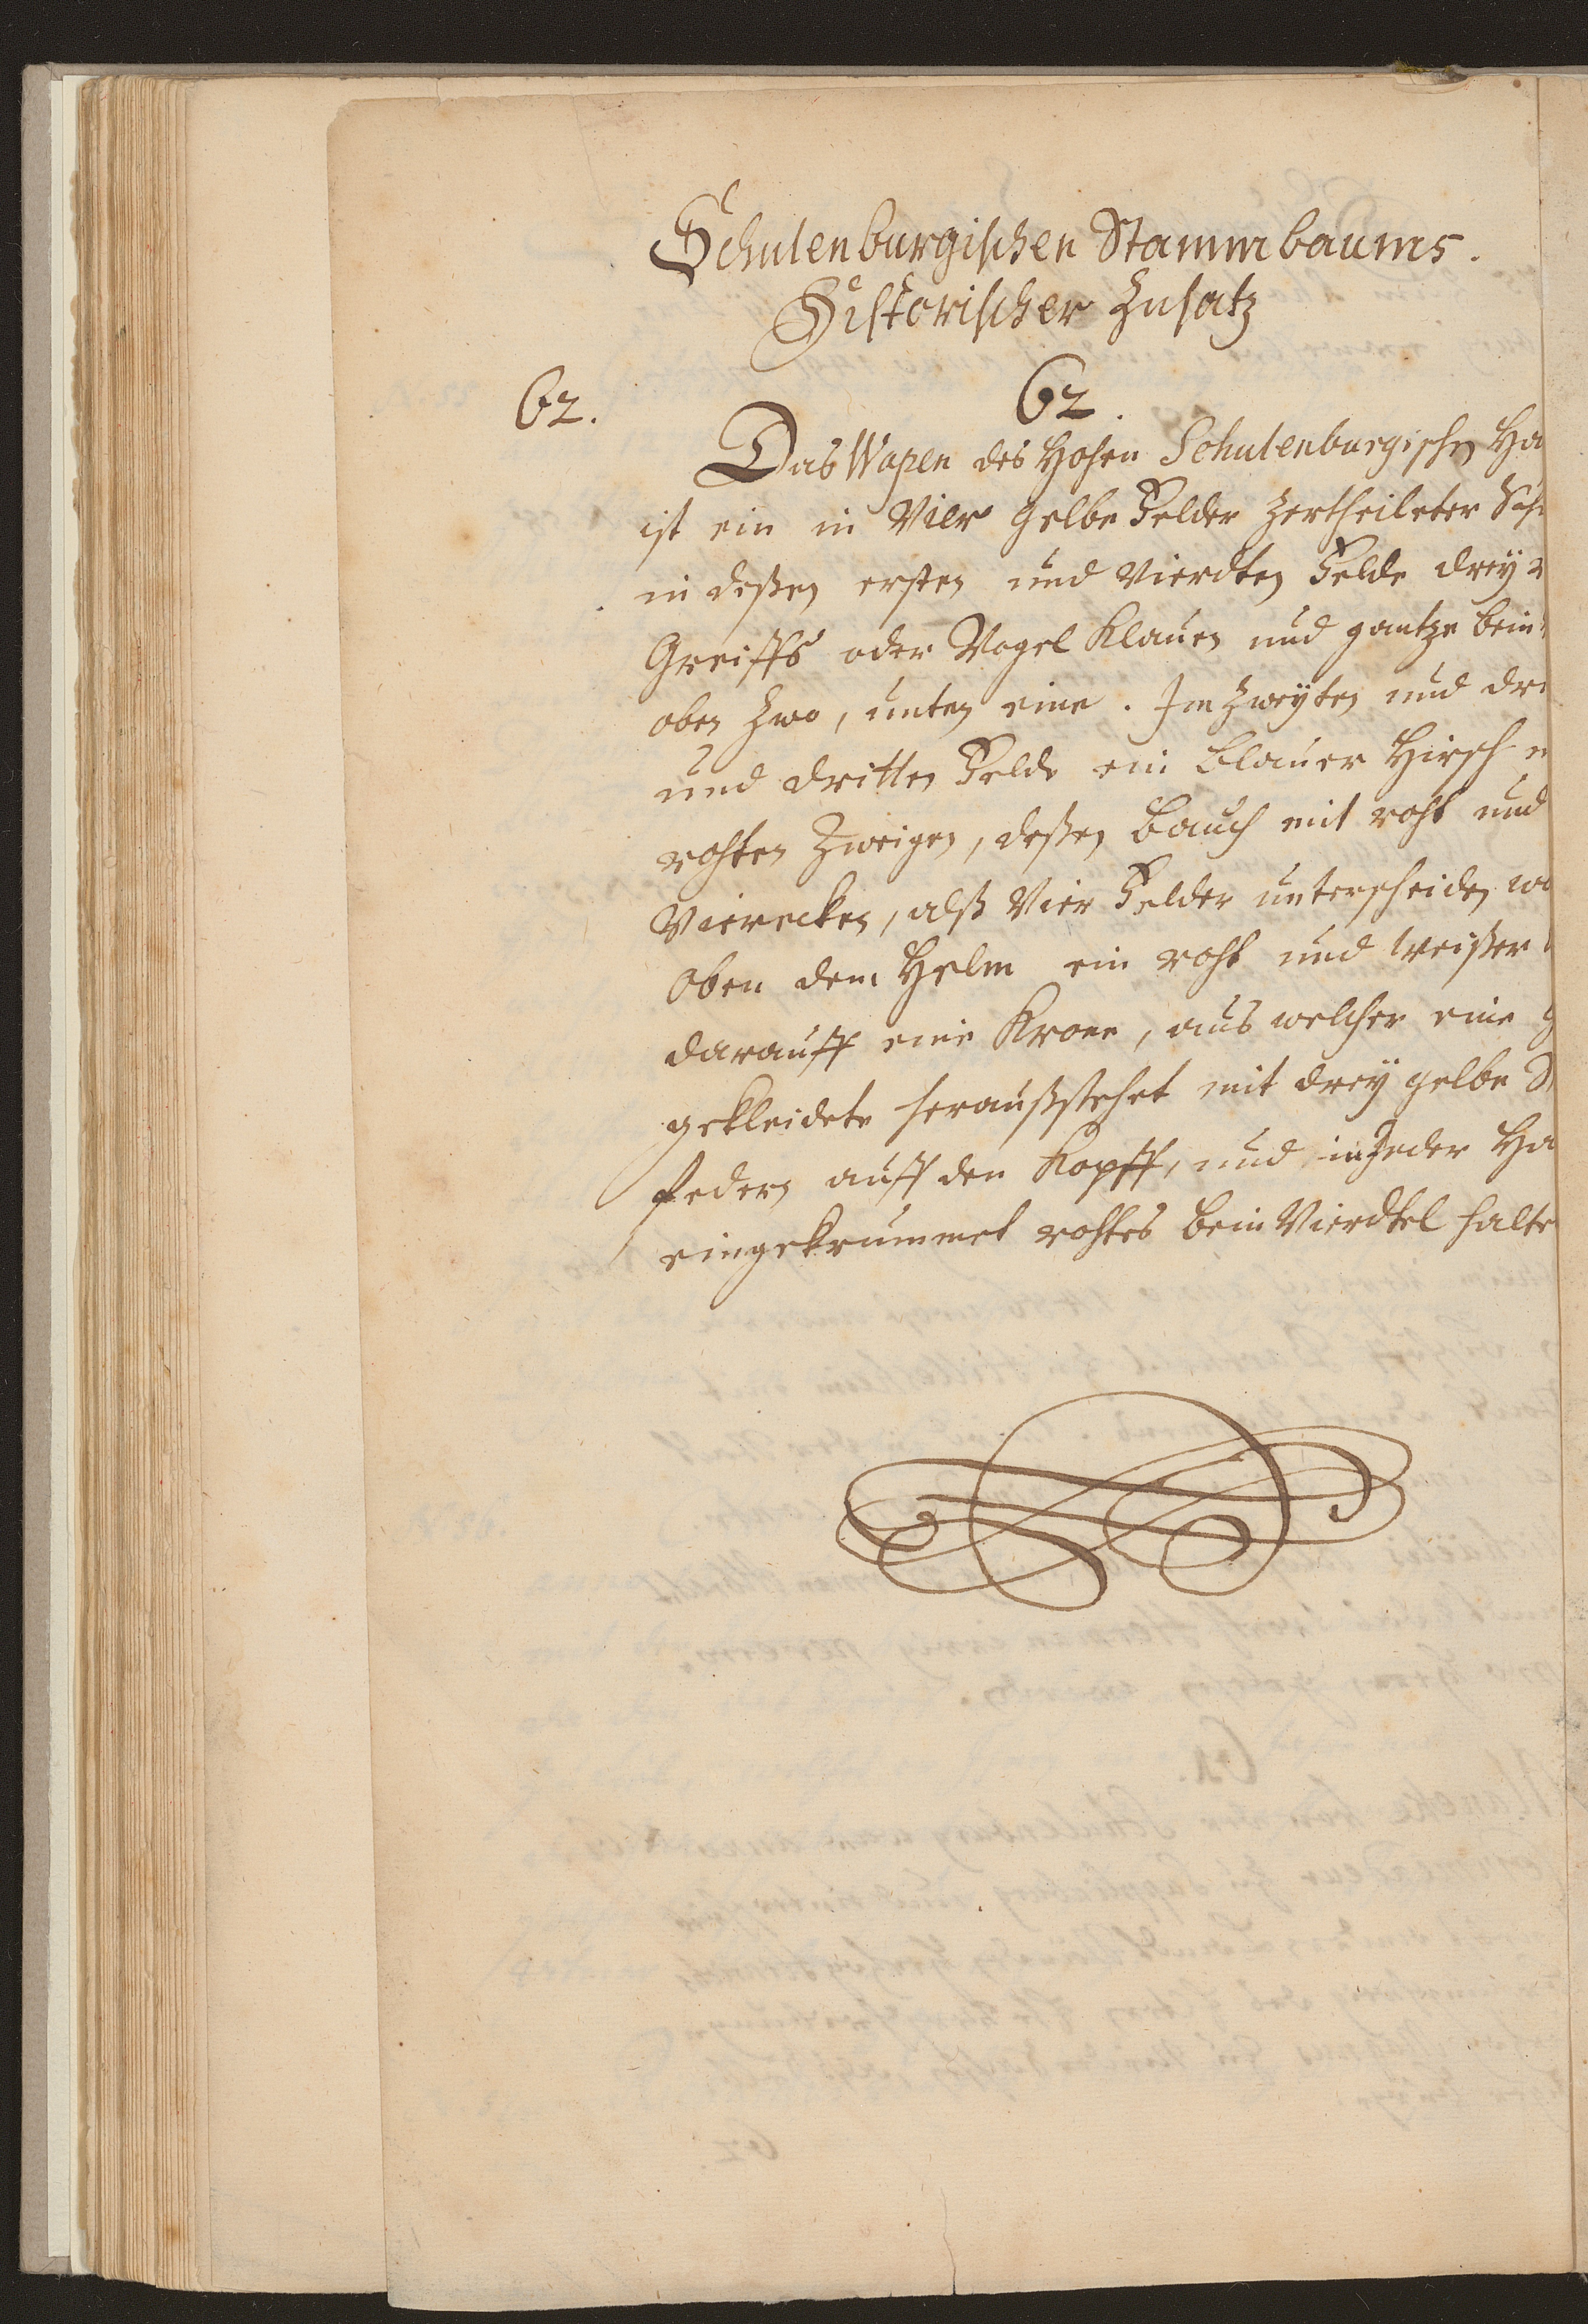 Schulenburgischen Stammbaums.
Historischer Zusatz
62.
62.
Das Wapen des Hohen Schulenburgischen Ha
ist ein in Vier gelbe Felder zertheileter Sch
in deßen ersten und Vierdten Felde drey
Greiffs oder Vogel Klauen und gantze bein
oben zwo, unten eine. Im zweyten und dri
und dritten Felde ein blauer Hirsch
rohten Zweigen, deßen Bauch mit roht und
Vierecken, alß Vier Felder unterscheiden
Oben dem Helm ein roht und weißer
darauff eine Krone, aus welcher eine g
gekleidete heraußstehet mit drey gelbe
federn auff den Kopff, und in Jeder Ha
eingekrummet rohtes bein Vierdtel halte